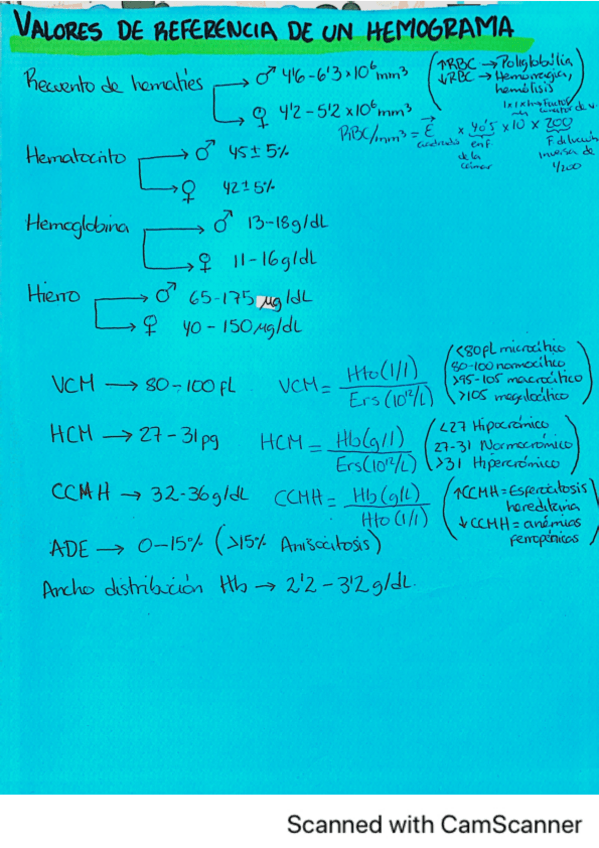 VALORES DE REFERENCIA DE UN HEMOGRAMA
Recuento de hematíes → ♂ 4'6-6'3×10⁶mm³
→ ♀ 4'2-5'2×10⁶mm³
(↑RBC → Poliglobulia,
↓RBC → Hemorragia,
hemólisis)
RBC/mm³ = × 40'5 × 10 × 200
de la
F. dilución
inversa de
1/200
Hematocrito → ♂ 45±5%
→ ♀ 42±5%
Hemoglobina → ♂ 13-18g/dL
→ ♀ 11-16g/dL
Hierro → ♂ 65-175 µg/dL
→ ♀ 40-150 µg/dL
VCM → 80-100 fL VCM = Hto(1/1) / Ers(10¹²/L)
(<80 fL microcítico
80-100 normocítico
>95-105 macrocítico
>105 megalocítico
HCM → 27-31pg HCM = Hb(g/l) / Ers(10¹²/L)
(<27 Hipocrómico
27-31 Normocrómico
>31 Hipercrómico)
CCMH → 32-36g/dL CCMH = Hb(g/L) / Hto(1/1)
(↑CCMH = Esferocitosis
hereditaria
↓CCMH = anemias
ferropénicas)
ADE → 0-15% (>15% Anisocitosis)
Ancho distribución Hb → 2'2-3'2g/dL.
Scanned with CamScanner